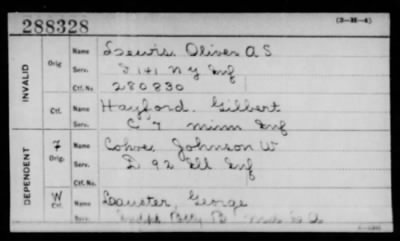 288328
(3-H-4)
INVALID
Orig
Name Lewis Oliver A S
Serv. I 141 N Y Inf
Ctf. No. 280830
Ctf. Name Hayford, Gilbert
Serv. C 7 Minn Inf
DEPENDENT
7
Orig. Name Johnson W
Serv. D 92 Ill Inf
Ctf. No.
W
Ctf. Name George
Serv. Batty B